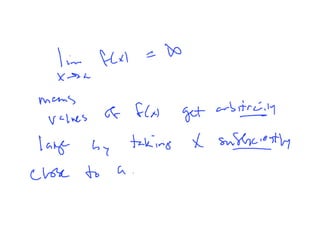 lim f(x) = ∞
x→a
means
values of f(x) get arbitrarily
large by taking x sufficiently
close to a.